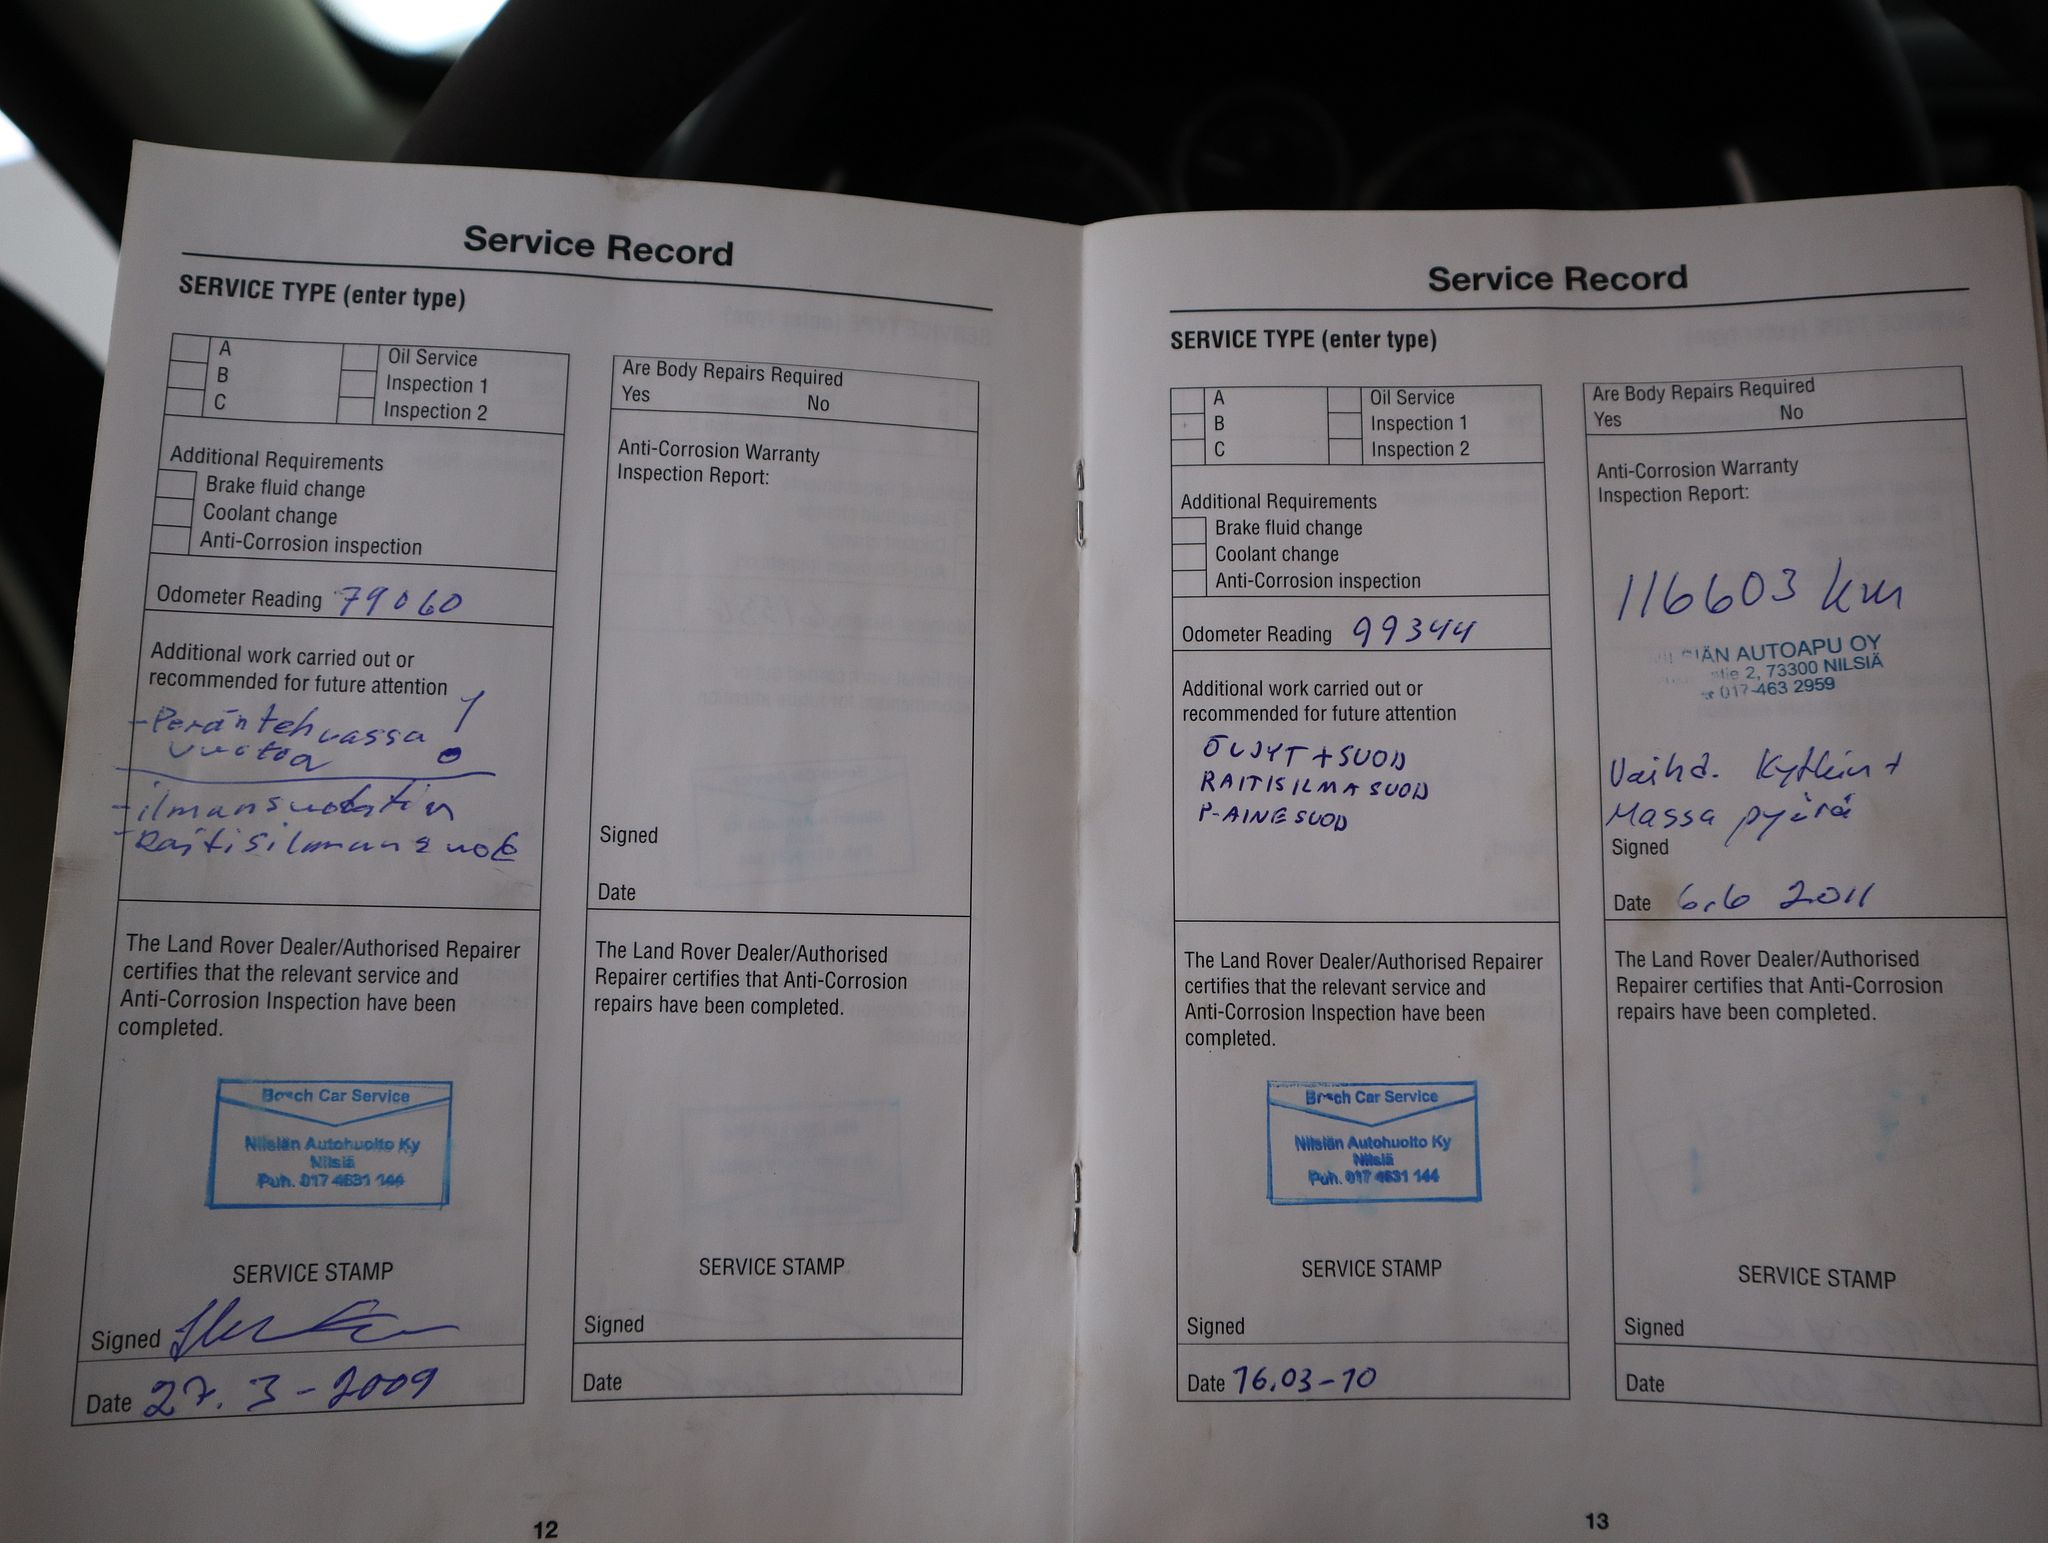 Service Record
SERVICE TYPE (enter type)
A
B
C
Oil Service
Inspection 1
Inspection 2
Additional Requirements
Brake fluid change
Coolant change
Anti-Corrosion inspection
Odometer Reading 79060
Additional work carried out or
recommended for future attention
- Perän tehvassa !
vuotoa
- ilmansuodatin
- Raitisilmansuod
The Land Rover Dealer/Authorised Repairer
certifies that the relevant service and
Anti-Corrosion Inspection have been
completed.
Bosch Car Service
Nilsiän Autohuolto Ky
Nilsiä
Puh. 017 4631 144
SERVICE STAMP
Signed
Date 27. 3 - 2009
Are Body Repairs Required
Yes No
Anti-Corrosion Warranty
Inspection Report:
Signed
Date
The Land Rover Dealer/Authorised
Repairer certifies that Anti-Corrosion
repairs have been completed.
SERVICE STAMP
Signed
Date
12
Service Record
SERVICE TYPE (enter type)
A
B
C
Oil Service
Inspection 1
Inspection 2
Additional Requirements
Brake fluid change
Coolant change
Anti-Corrosion inspection
Odometer Reading 99344
Additional work carried out or
recommended for future attention
ÖLJYT + SUOD
RAITISILMA SUOD
P-AINE SUOD
The Land Rover Dealer/Authorised Repairer
certifies that the relevant service and
Anti-Corrosion Inspection have been
completed.
Bosch Car Service
Nilsiän Autohuolto Ky
Nilsiä
Puh. 017 4631 144
SERVICE STAMP
Signed
Date 16.03-10
Are Body Repairs Required
Yes No
Anti-Corrosion Warranty
Inspection Report:
116603 km
AUTOAPU OY
2, 73300 NILSIÄ
017-463 2959
Vaihd. Kytkin +
Massa pyörä
Signed
Date 6.6 2011
The Land Rover Dealer/Authorised
Repairer certifies that Anti-Corrosion
repairs have been completed.
SERVICE STAMP
Signed
Date
13